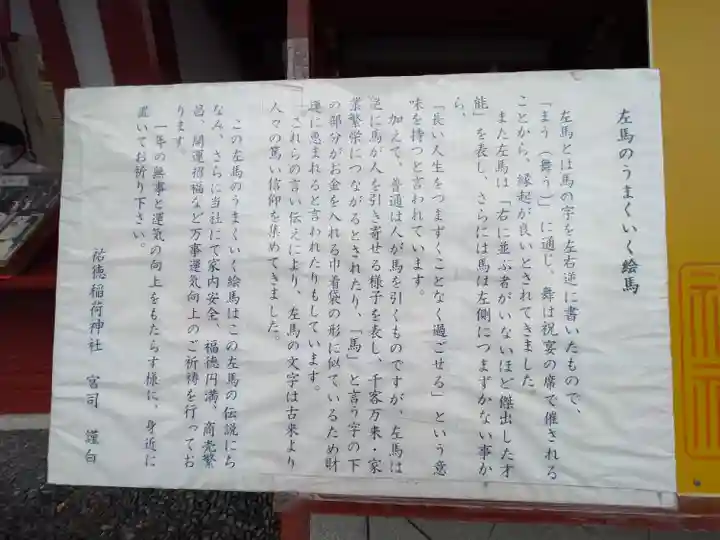 左馬のうまくいく絵馬
左馬とは馬の字を左右逆に書いたもので、
「まう（舞う）」に通じ。舞は祝宴の席で催される
ことから、縁起が良いとされてきました。
また左馬は「右に並ぶ者がいないほど傑出したオ
能」を表し、さらには馬は左側につまずかない事か
ら、
「長い人生をつまずくことなく過ごせる」という意
味を持つと言われています。
加えて、普通は人が馬を引くものですが、左馬は
逆に馬が人を引き寄せる様子を表し、千客万来・家
業繁栄につながるとされたり、「馬」と言う字の下
の部分がお金を入れる巾着袋の形に似ているため財
運に恵まれると言われたりもしています。
これらの言い伝えにより、左馬の文字は古来より
人々の篤い信仰を集めてきました。
この左馬のうまくいく絵馬はこの左馬の伝説にち
なみ、さらに当社にて家内安全、福徳円満、商売繁
昌、開運招福など万事運気向上のご祈祷を行ってお
ります。
一年の無事と運気の向上をもたらす様に、身近に
置いてお祈り下さい。
祐徳稲荷神社　宮司　謹白